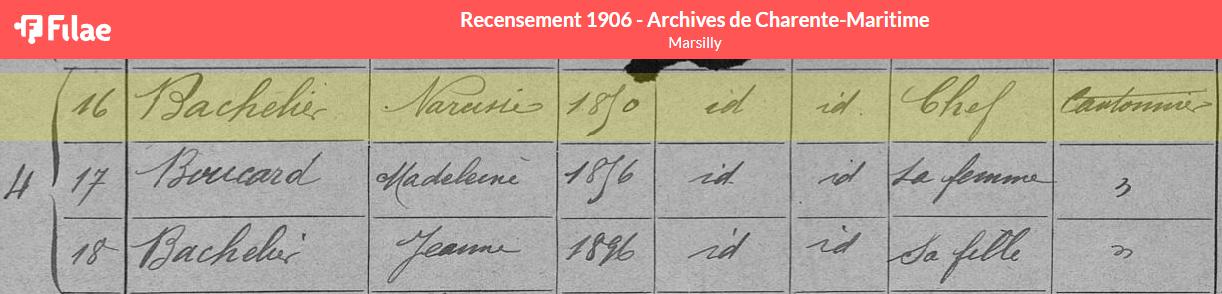 Filae
Recensement 1906 - Archives de Charente-Maritime
Marsilly
16 Bachelier Narcisse 1850 id id. Chef Cantonnier
4 17 Boucard Madeleine 1856 id id La femme "
18 Bachelier Jeanne 1896 id id Sa fille "